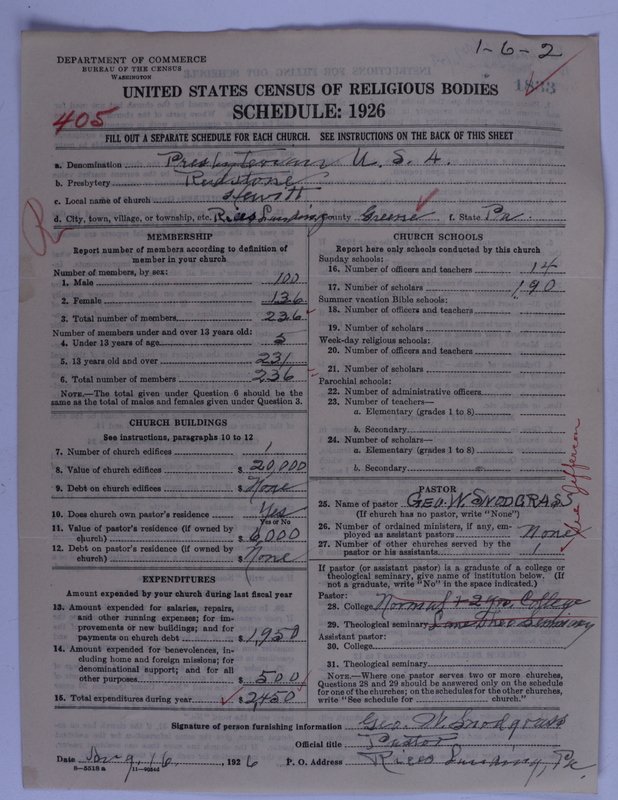 1-6-2
DEPARTMENT OF COMMERCE
BUREAU OF THE CENSUS
WASHINGTON
1833
UNITED STATES CENSUS OF RELIGIOUS BODIES
SCHEDULE: 1926
405
FILL OUT A SEPARATE SCHEDULE FOR EACH CHURCH. SEE INSTRUCTIONS ON THE BACK OF THIS SHEET
a. Denomination Presbyterian U. S. A.
b. Presbytery Redstone
c. Local name of church Hewitt
d. City, town, village, or township, etc. Rices Landing County Greene f. State Pa.
R
MEMBERSHIP
Report number of members according to definition of
member in your church
Number of members, by sex:
1. Male 100
2. Female 136
3. Total number of members 236
Number of members under and over 13 years old:
4. Under 13 years of age 5
5. 13 years old and over 231
6. Total number of members 236
NOTE.—The total given under Question 6 should be
same as the total of males and females given under Question 3.
CHURCH BUILDINGS
See instructions, paragraphs 10 to 12
7. Number of church edifices 1
8. Value of church edifices $ 20,000
9. Debt on church edifices $ None
10. Does church own pastor's residence Yes
Yes or No
11. Value of pastor's residence (if owned by
church) $ 6,000
12. Debt on pastor's residence (if owned by
church) $ None
EXPENDITURES
Amount expended by your church during last fiscal year
13. Amount expended for salaries, repairs,
and other running expenses; for im-
provements or new buildings; and for
payments on church debt $ 1950
14. Amount expended for benevolences, in-
cluding home and foreign missions; for
denominational support; and for all
other purposes $ 500
15. Total expenditures during year $ 2450
CHURCH SCHOOLS
Report here only schools conducted by this church
Sunday schools:
16. Number of officers and teachers 14
17. Number of scholars 190
Summer vacation Bible schools:
18. Number of officers and teachers
19. Number of scholars
Week-day religious schools:
20. Number of officers and teachers
21. Number of scholars
Parochial schools:
22. Number of administrative officers
23. Number of teachers—
a. Elementary (grades 1 to 8)
b. Secondary
24. Number of scholars—
a. Elementary (grades 1 to 8)
b. Secondary
PASTOR
25. Name of pastor GEO. W. SNODGRASS
(If church has no pastor, write "None")
26. Number of ordained ministers, if any, em-
ployed as assistant pastors None
27. Number of other churches served by the
pastor or his assistants 1
See Jefferson
If pastor (or assistant pastor) is a graduate of a college or
theological seminary, give name of institution below. (If
not a graduate, write "No" in the space indicated.)
Pastor:
28. College Normal + 2 yrs. College
29. Theological seminary Seminary
Assistant pastor:
30. College
31. Theological seminary
NOTE.—Where one pastor serves two or more churches,
Questions 28 and 29 should be answered only on the schedule
for one of the churches; on the schedules for the other churches,
write "See schedule for church."
Signature of person furnishing information Geo. W. Snodgrass
Official title Pastor
Date 16, 1926 P. O. Address Rices Landing, Pa.
8—5518 a